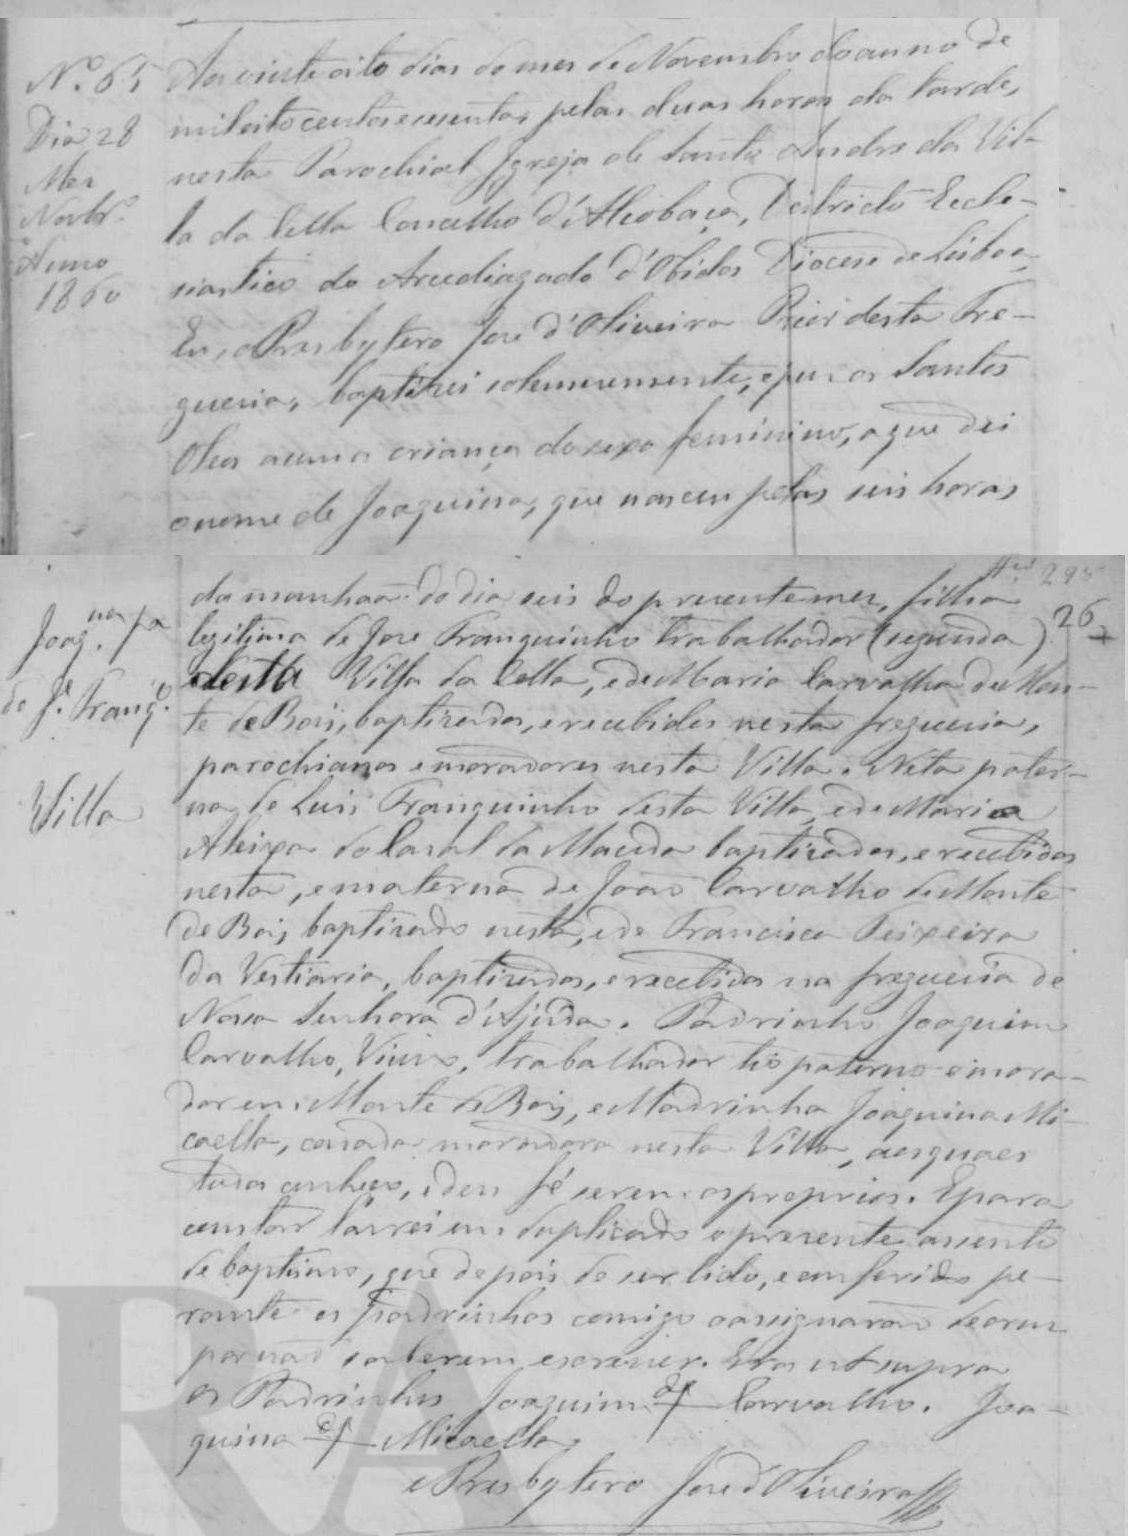 Nº. 65
Dia 28
Mez
Novbrº
Anno
1860
Aos vinte oito dias do mes de Novembro do anno de
mil oito centos e secenta, pelas duas horas da tarde,
nesta Parochial Igreja de Santo Andre da Vil-
la da Cella Concelho d'Alcobaça, Districto Eccle-
siastico do Arcediagado d'Obidos Diocese de Lisboa,
Eu, o Presbytero Jose d'Oliveira Prior desta Fre-
guesia, baptizei solemnemente, e puz os Santos
Oleos a uma criança do sexo feminino, a que dei
o nome de Joaquina, que nasceu pelas seis horas
295
26
Joaq.na fa
de Je. Franq.º
Villa
da manhaã do dia seis do presente mez, filha
legitima de Jose Franquinho trabalhador (segunda)
desta Villa da Cella, e de Maria Carvalha de Mon-
te de Bois, baptizados, e recebidos nesta freguesia,
parochianos e moradores nesta Villa. Neta pater-
na de Luis Franquinho desta Villa, e de Maria
Aleixa do Casal da Maceda baptizados, e recebidos
nesta, e materna de João Carvalho de Monte
de Bois baptizado nesta, e de Francisca Teixeira
da Vestiaria, baptizados, e recebidos na freguesia de
Nossa Senhora d'Ajuda. Padrinho Joaquim
Carvalho, Viuvo, trabalhador tio paterno e mora-
dor em Monte de Bois, e Madrinha Joaquina Mi-
caella, casada moradora nesta Villa, aos quaes
todos conheço, e dou fé serem os proprios. E para
constar lavrei em duplicado o presente assento
de baptismo, que depois de ser lido, e conferido pe-
rante os padrinhos comigo o assignarão de cruz
por não saberem escrever. Era ut supra
Os Padrinhos Joaquim de + Carvalho. Joa-
quina de + Micaella,
o Presbytero Jose d'Oliveira
RA